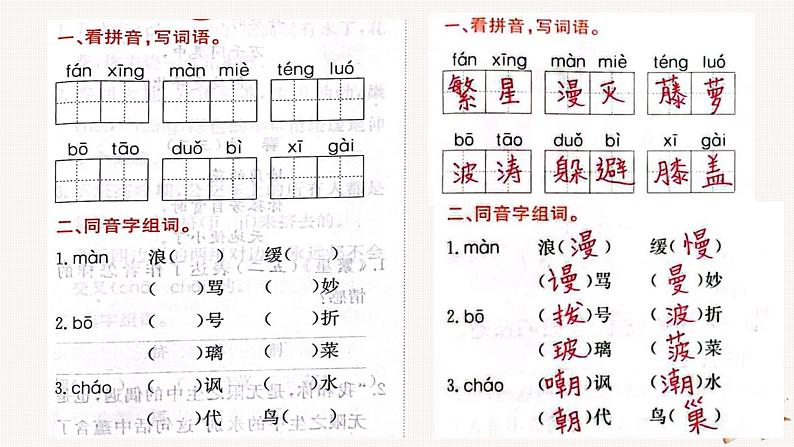 一、看拼音，写词语。
fán xīng màn miè téng luó
bō tāo duǒ bì xī gài
二、同音字组词。
1. màn 浪（ ） 缓（ ）
（ ）骂 （ ）妙
2. bō （ ）号 （ ）折
（ ）璃 （ ）菜
3. cháo （ ）讽 （ ）水
（ ）代 鸟（ ）
一、看拼音，写词语。
fán xīng màn miè téng luó
繁星 漫灭 藤萝
bō tāo duǒ bì xī gài
波涛 躲避 膝盖
二、同音字组词。
1. màn 浪（漫） 缓（慢）
（谩）骂 （曼）妙
2. bō （拨）号 （波）折
（玻）璃 （菠）菜
3. cháo （嘲）讽 （潮）水
（朝）代 鸟（巢）